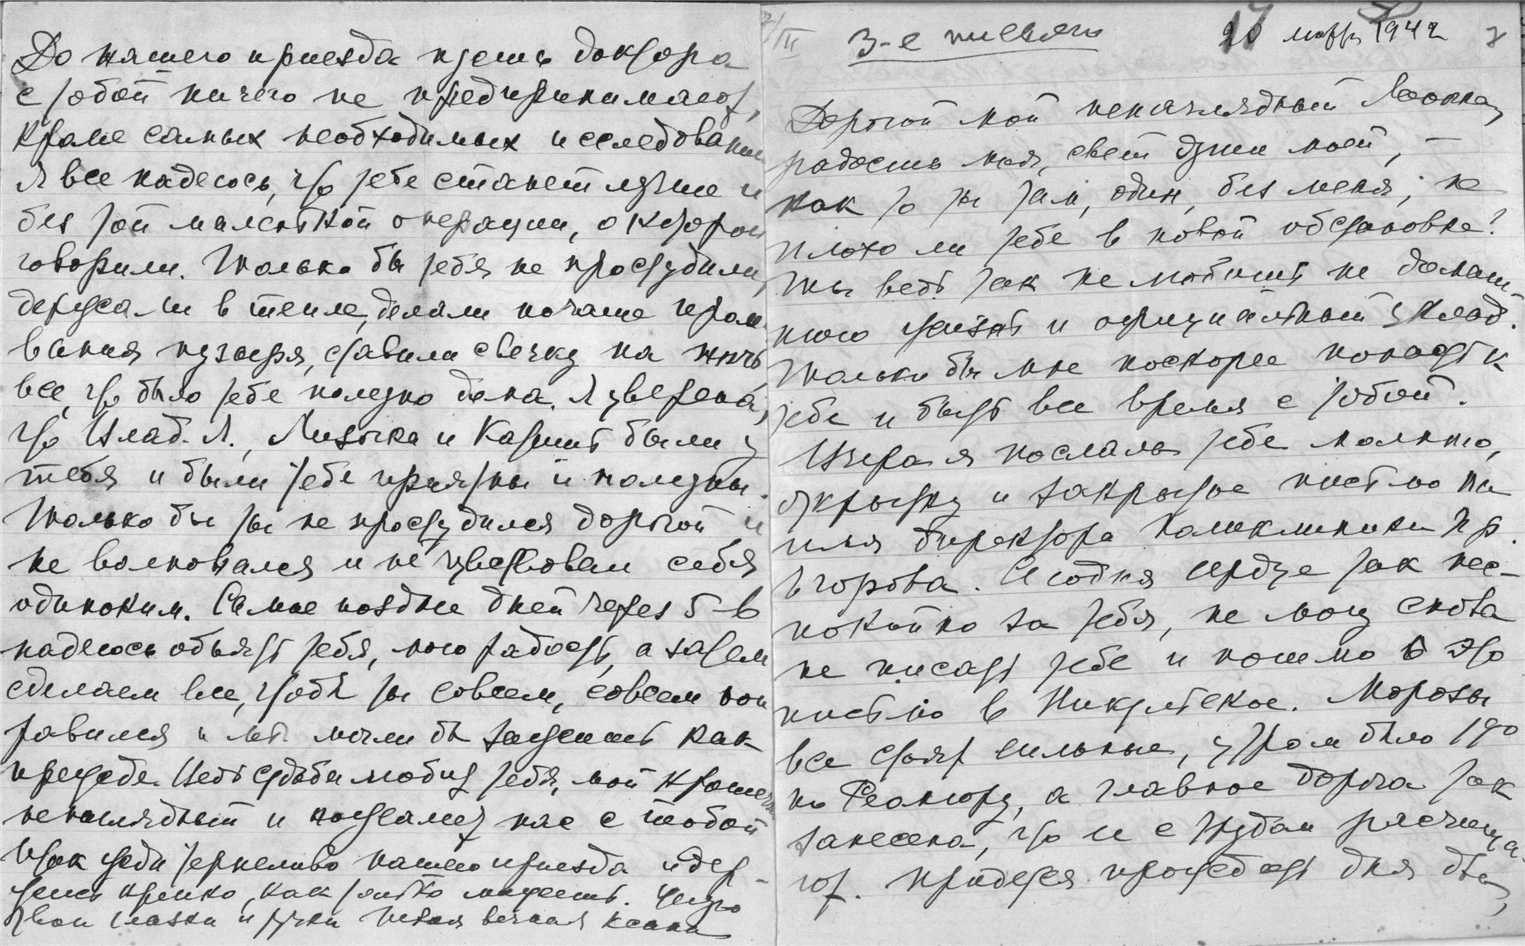 3-е письмо
20 марта 1942
Дорогой мой ненаглядный Леончик,
радость моя, свет души моей, –
как то ты там, один, без меня, не
плохо ли тебе в новой обстановке?
Ты ведь так не любишь не домаш-
нюю жизнь и официальный уклад.
Только бы мне поскорее попасть к
тебе и быть все время с тобой.
Вчера я послала тебе молнию,
открытку и закрытое письмо на
имя директора поликлиники пр.
Егорова. Сегодня сердце так нес-
покойно за тебя, не могу снова
не писать тебе и пошлю это
письмо в Никульское. Морозы
все стоят сильные, утром было 19°
по Реомюру, а главное дорога так
занесена, что и с трудом расчища-
ют. Придется прождать дня два,
До нашего приезда пусть доктора
с тобой ничего не предпринимают,
кроме самых необходимых исследований
Я все надеюсь, что тебе станет лучше и
без той маленькой операции, о которой
говорили. Только бы тебя не простудили,
держали в тепле, делали почаще промы
вания пузыря, ставили свечку на ночь
все, что было тебе полезно дома. Я уверена,
что Влад. Л., Лизочка и были у
тебя и были тебе приятны и полезны.
Только бы ты не простудился дорогой и
не волновался и не чувствовал себя
одиноким. Самое позднее дней через 5-6
надеюсь обнять тебя, мою радость, а затем
сделаем все, чтобы ты совсем, совсем поп
равился и мы могли бы зажить как
прежде. Ведь судьба любит тебя, мой
ненаглядный и нас с тобой
Так жди терпеливо нашего приезда и дер-
жись крепко, как только можешь. Целую
твои глазки и ручки Твоя вечная Ксана